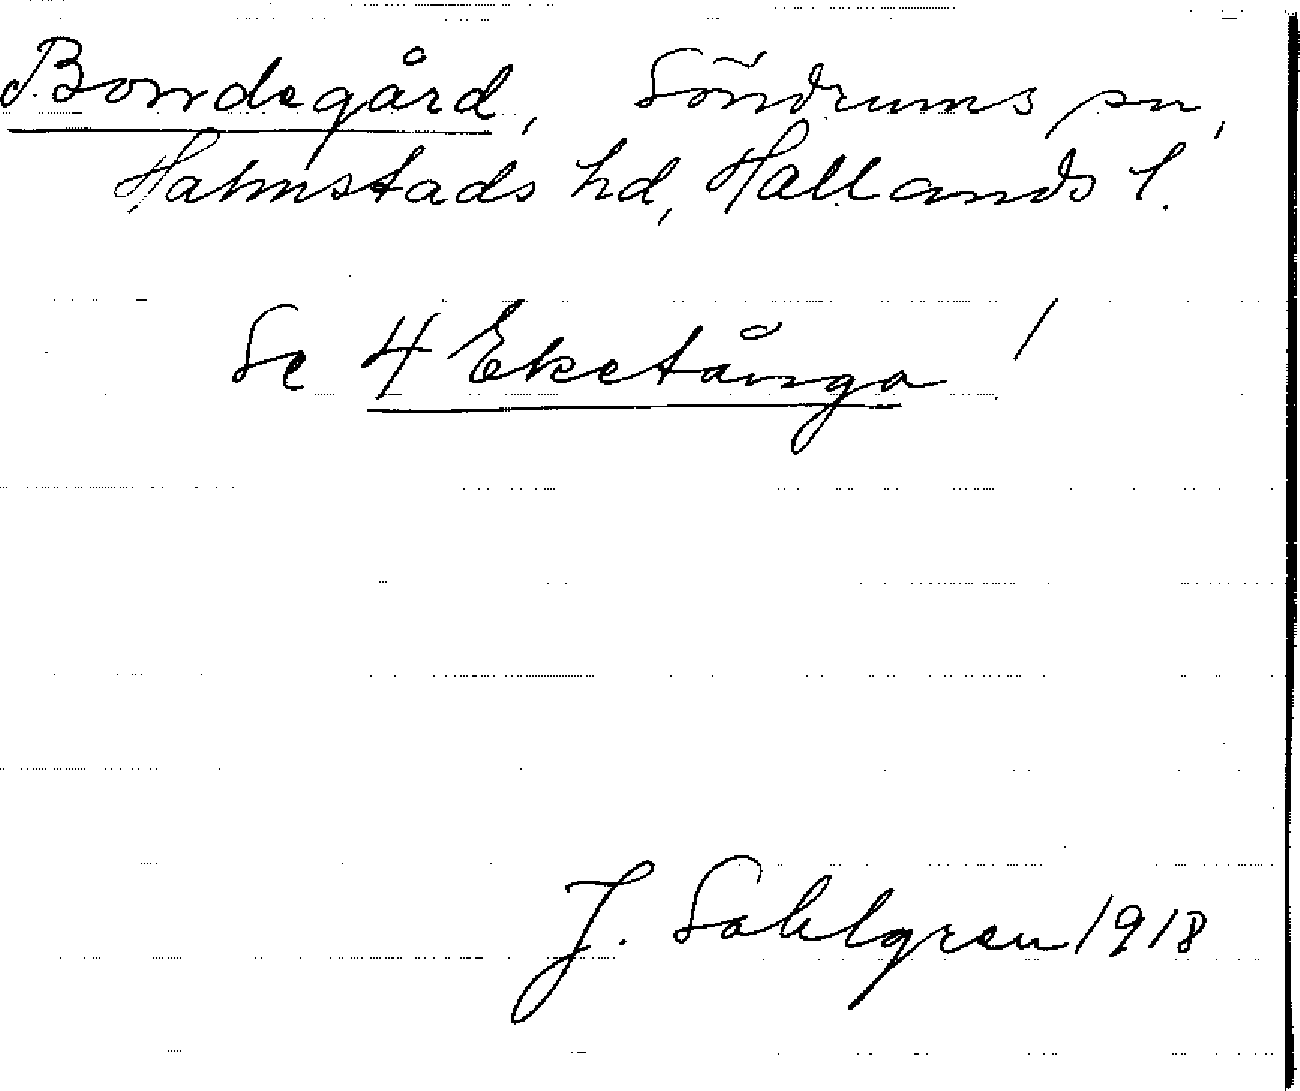 Bondegård, Söndrums sn,
Halmstads hd, Hallands l.
Se 4 Eketånga!
J. Sahlgren 1918